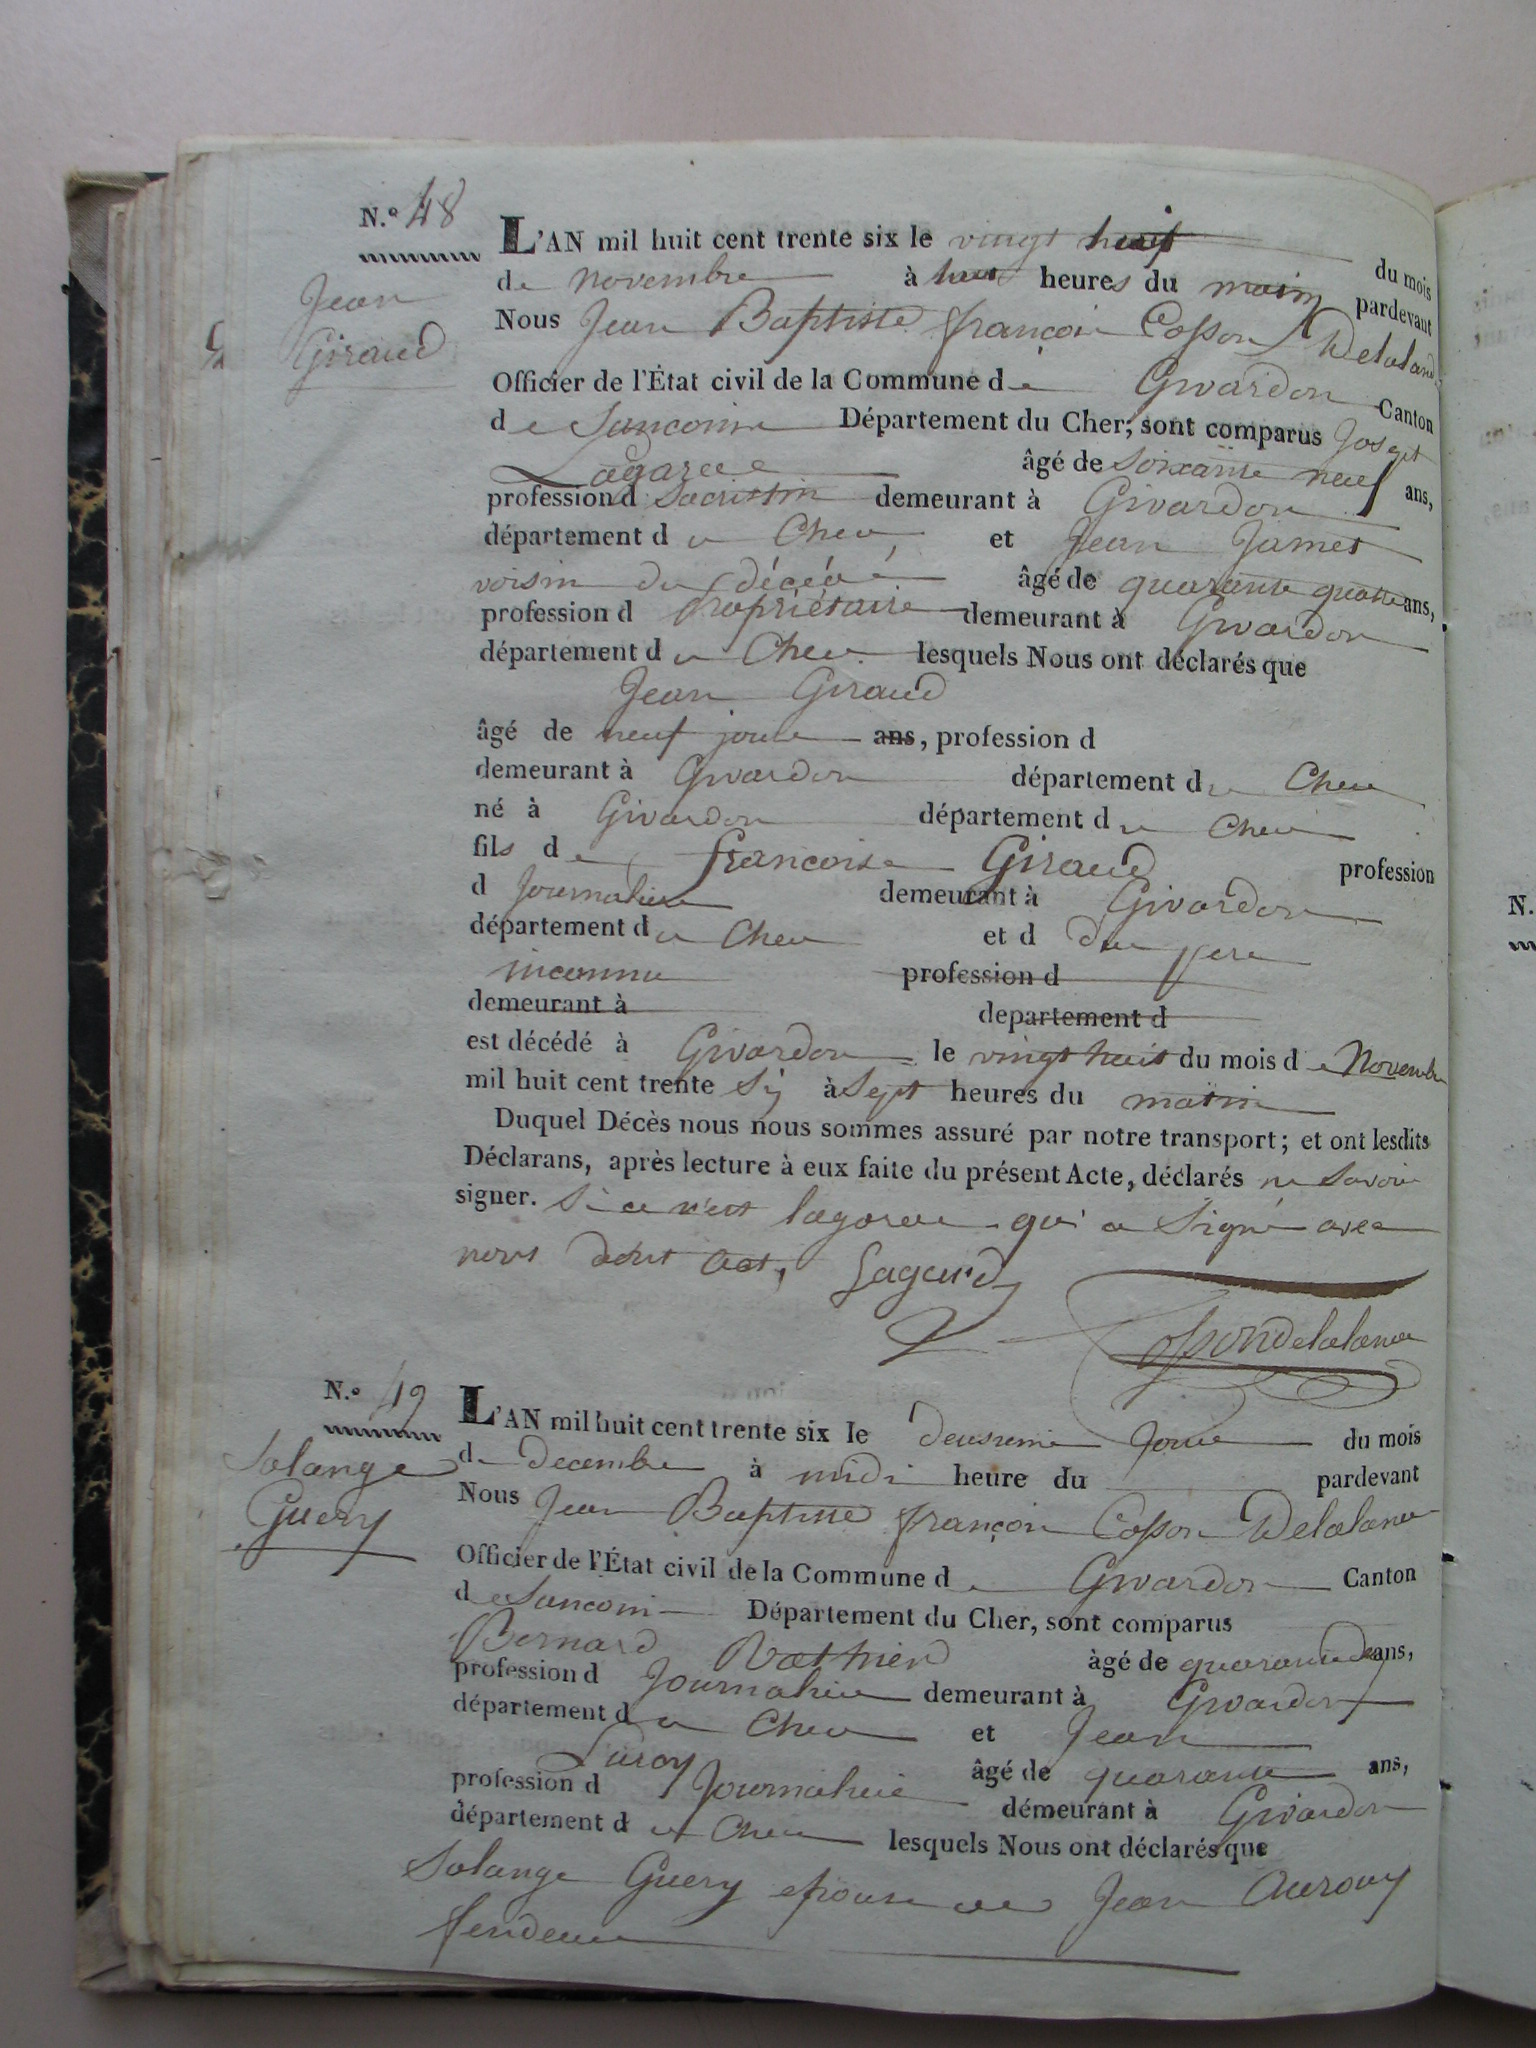 N.º 48
Jean
Giraud
L'AN mil huit cent trente six le vingt huit du mois
de novembre à huit heures du matin pardevant
Nous Jean Baptiste françois Cosson Delalande
Officier de l'État civil de la Commune de Givardon Canton
de Sancoins Département du Cher, sont comparus Joseph
Lagarde âgé de soixante neuf ans,
profession d sacristin demeurant à Givardon
département du Cher et Jean Jamet
voisin du décédé âgé de quarante quatre ans,
profession d propriétaire demeurant à Givardon
département du Cher lesquels Nous ont déclarés que
Jean Giraud
âgé de neuf jours ans, profession d
demeurant à Givardon département du Cher
né à Givardon département du Cher
fils de francoise Giraud profession
d Journaliere demeurant à Givardon
département du Cher et d d'un pere
inconnu profession d
demeurant à departement d
est décédé à Givardon le vingt huit du mois de Novembre
mil huit cent trente six à Sept heures du matin
Duquel Décès nous nous sommes assuré par notre transport; et ont lesdits
Déclarans, après lecture à eux faite du présent Acte, déclarés ne Savoir
signer. Si ce n'est lagarde qui a Signé avec
nous dont act, Lagarde
Cossondelalande
N.º 49
Solange
Guery
L'AN mil huit cent trente six le deuxieme Jour du mois
de decembre à midi heure du pardevant
Nous Jean Baptiste françois Cosson Delalande
Officier de l'État civil de la Commune de Givardon Canton
de Sancoins Département du Cher, sont comparus
Bernard àgé de quarante ans,
profession d Journalier demeurant à Givardon
département du Cher et Jean
Luroy âgé de quarante ans,
profession d Journalier démeurant à Givardon
département du Cher lesquels Nous ont déclarés que
Solange Guery epouse de Jean Aurouy
fendeur
N.